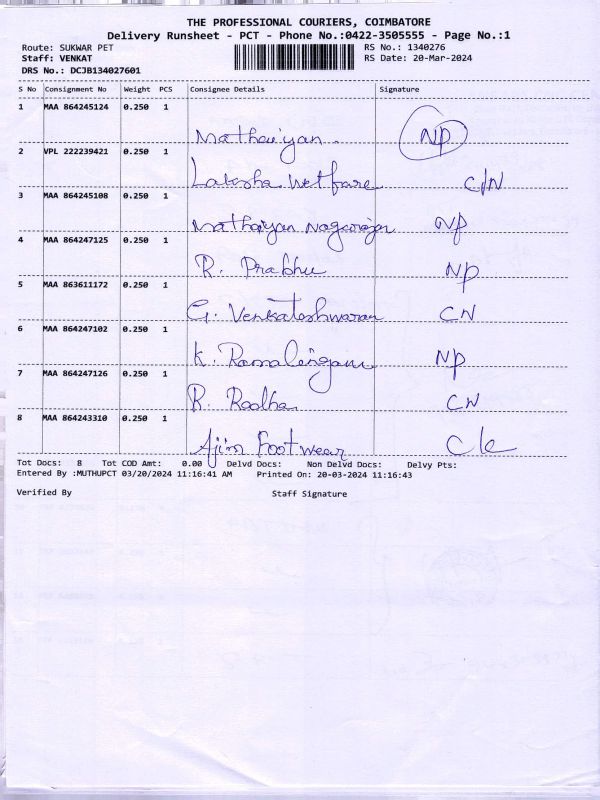 THE PROFESSIONAL COURIERS, COIMBATORE
Delivery Runsheet - PCT - Phone No.:0422-3505555 - Page No.:1
Route: SUKWAR PET RS No.: 1340276
Staff: VENKAT RS Date: 20-Mar-2024
DRS No.: DCJB134027601
S No Consignment No Weight PCS Consignee Details Signature
1 MAA 864245124 0.250 1 Mathaiyan. NP
2 VPL 222239421 0.250 1 Laksha Welfare C/N
3 MAA 864245108 0.250 1 Mathaiyan Nagarajan NP
4 MAA 864247125 0.250 1 R. Prabhu NP
5 MAA 863611172 0.250 1 G. Venkateshwaran CN
6 MAA 864247102 0.250 1 K. Ramalingam NP
7 MAA 864247126 0.250 1 R. Radha CN
8 MAA 864243310 0.250 1 Ajim Footwear
Tot Docs: 8 Tot COD Amt: 0.00 Delvd Docs: Non Delvd Docs: Delvy Pts:
Entered By :MUTHUPCT 03/20/2024 11:16:41 AM Printed On: 20-03-2024 11:16:43
Verified By Staff Signature